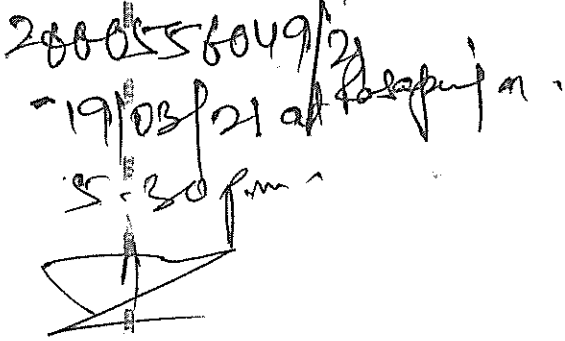 2000556049/21
-19/03/21 at
5-30 p.m.